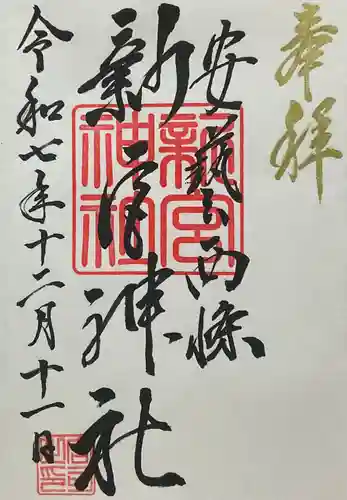 奉拝
安藝西條
新宮神社
新宮神社
令和七年十二月十一日